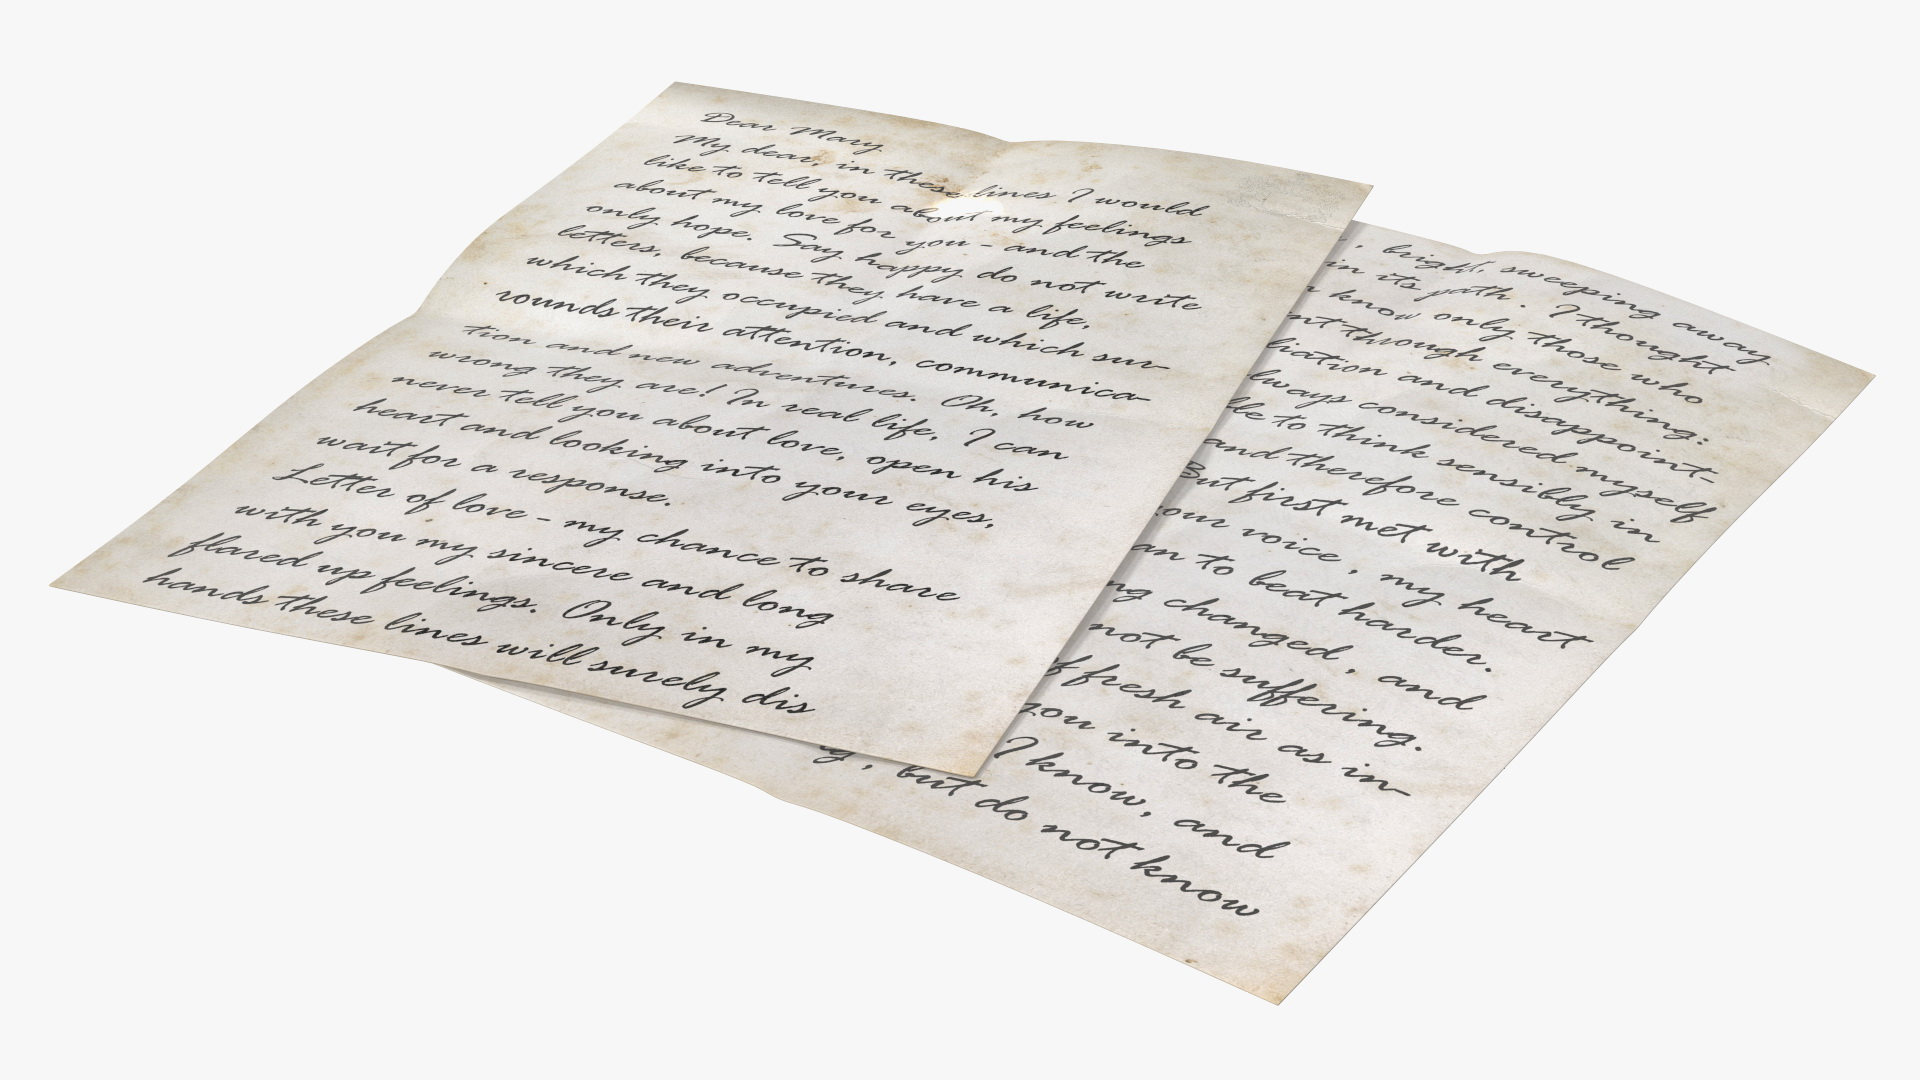 Dear Mary
My dear, in these lines I would
like to tell you about my feelings
about my love for you - and the
only hope. Say happy do not write
letters, because they have a life,
which they occupied and which sur-
rounds their attention, communica-
tion and new adventures. Oh, how
wrong they are! In real life, I can
never tell you about love, open his
heart and looking into your eyes,
wait for a response.
Letter of love - my chance to share
with you my sincere and long
flared up feelings. Only in my
hands these lines will surely dis
, bright, sweeping away
in its path. I thought
know only those who
through everything:
and disappoint-
considered myself
to think sensibly in
and therefore control
But first met with
voice, my heart
to beat harder.
changed, and
not be suffering.
fresh air as in-
you into the
I know, and
, but do not know